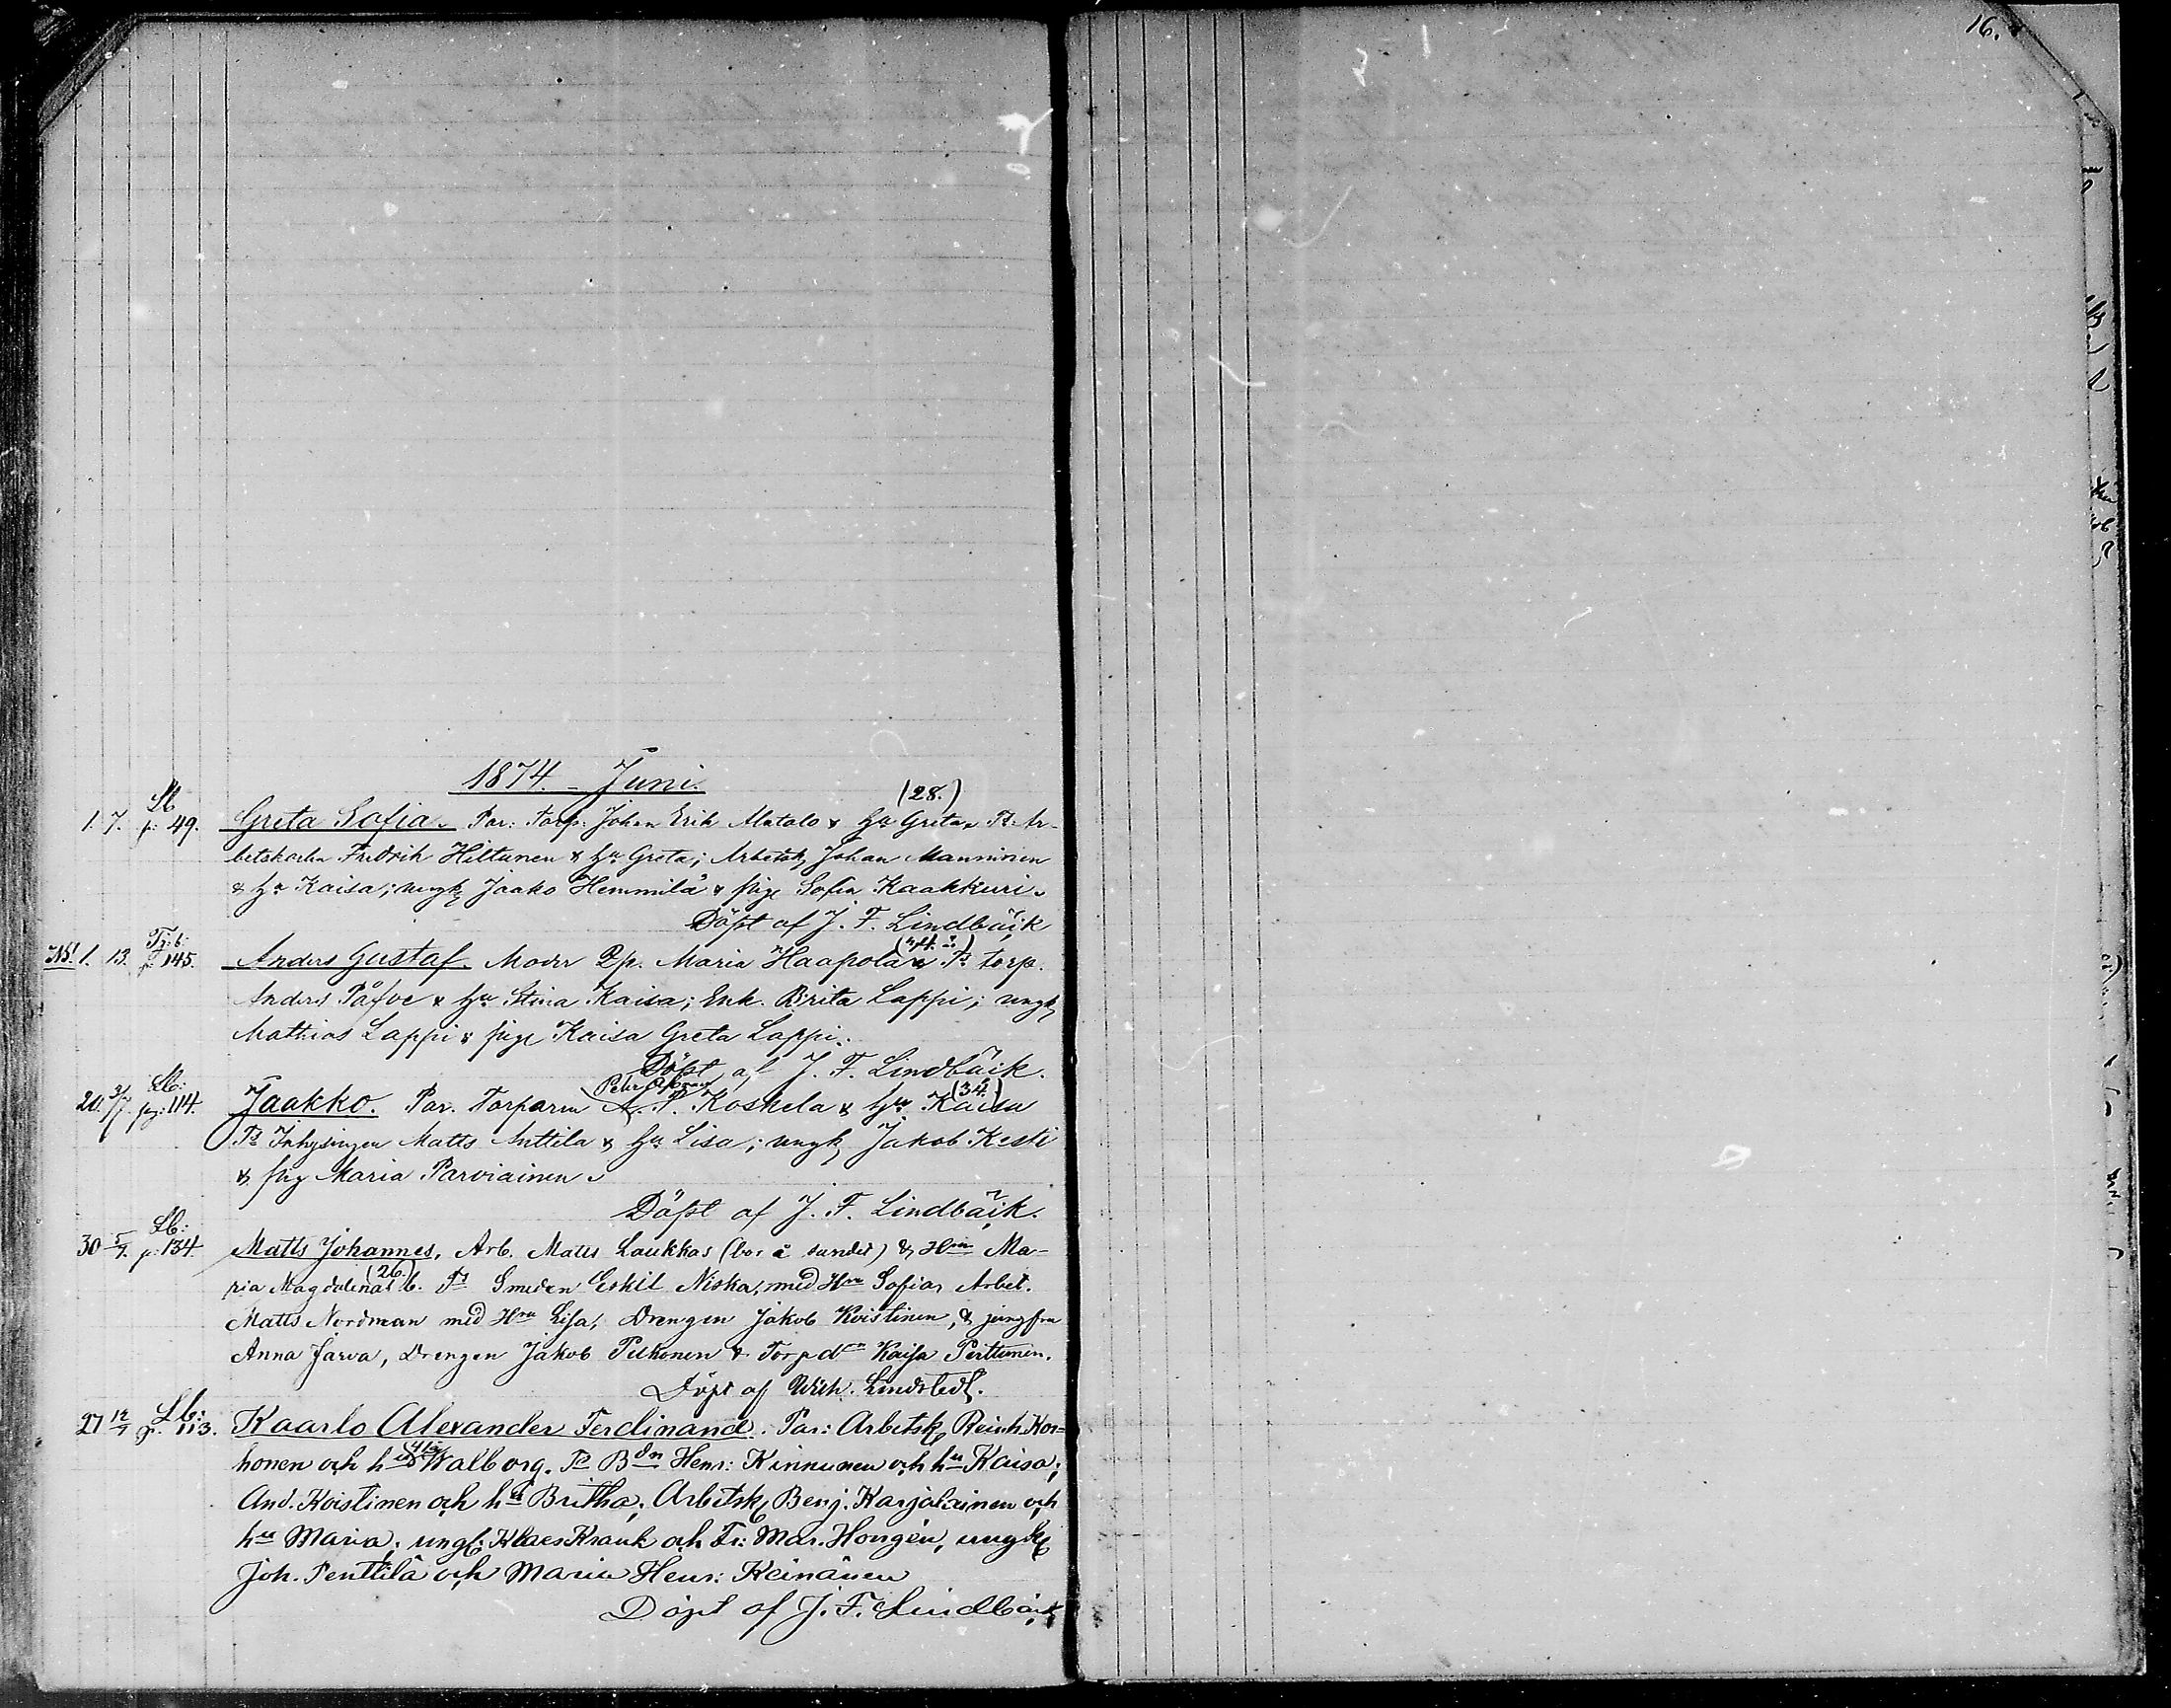 16.
1874. - Juni.
(28.)
Lb
1. 7. p: 49. Greta Sofia. Par: Torp: Johan Erik Matalo & hu Greta, Ts: Ar-
betskarln Fredrik Hiltunen & hu Greta; Arbetsk Johan Manninen
& hu Kaisa; ungk Jaako Hemmilä & pige Sofia Kaakkuri.
Döpt af J. F. Lindbäck
Tj: b:
NB! 1. 13. p. 145. Anders Gustaf. Moder Pp. Maria Haapola Ts torp.
Anders Påfve & hu Stina Kaisa; Enk. Brita Lappi; ungk
Mathias Lappi & pige Kaisa Greta Lappi.
Döpt af J. F. Lindbäck.
Lb: Petr (34.)
20. 3/7. pg: 114. Jaakko. Par. Torparen A. P. Koskela & hu Kaisa
Ts Inhysingen Matts Anttila & hu Lisa; ungk Jakob Kesti
& pig Maria Parviainen.
Döpt af J. F. Lindbäck.
Lb:
30 5/7. p: 134. Matts Johannes, Arb. Matts Laukkas (bor å sundet) & Hm Ma-
(26.)
ria Magdalena Ts Smeden Eskil Niska, med Hru Sofia, Arbet.
Matts Nordman med Hru Lisa, Drengen Jakob Koistinen, & jungfru
Anna Jarva, Drengen Jakob Pitkonen & Torpdr Kaisa Perttunen.
Döpt af Wilh. Lindstedt.
Lb:
27 12/7 p. 113. Kaarlo Alexander Ferdinand. Par: Arbetsk Reinh. Kor-
honen och hu Walborg. Ts Bdn Henr: Kinnunen och hu Kaisa;
And. Koistinen och hu Britha; Arbetsk Benj. Karjalainen och
hu Maria; ungk: Klaes Krank och Fr: Mar. Hongén, ungk
Joh. Penttilä och Maria Henr: Keinänen
Döpt af J. F. Lindbäck